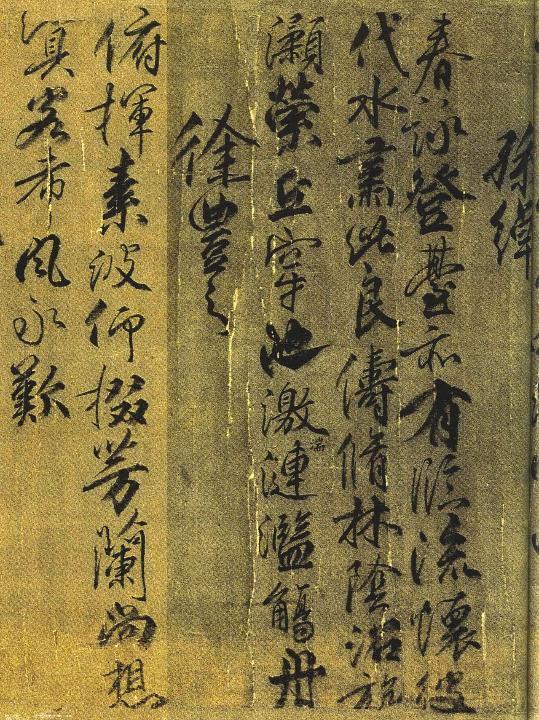 孫綽
春詠登臺亦有臨流懷彼
代水肅此良儔脩林陰沼旋
瀨榮丘穿池激湍漣濫觴舟
徐豐之
俯揮素波仰掇芳蘭尚想
冥客希風永歎